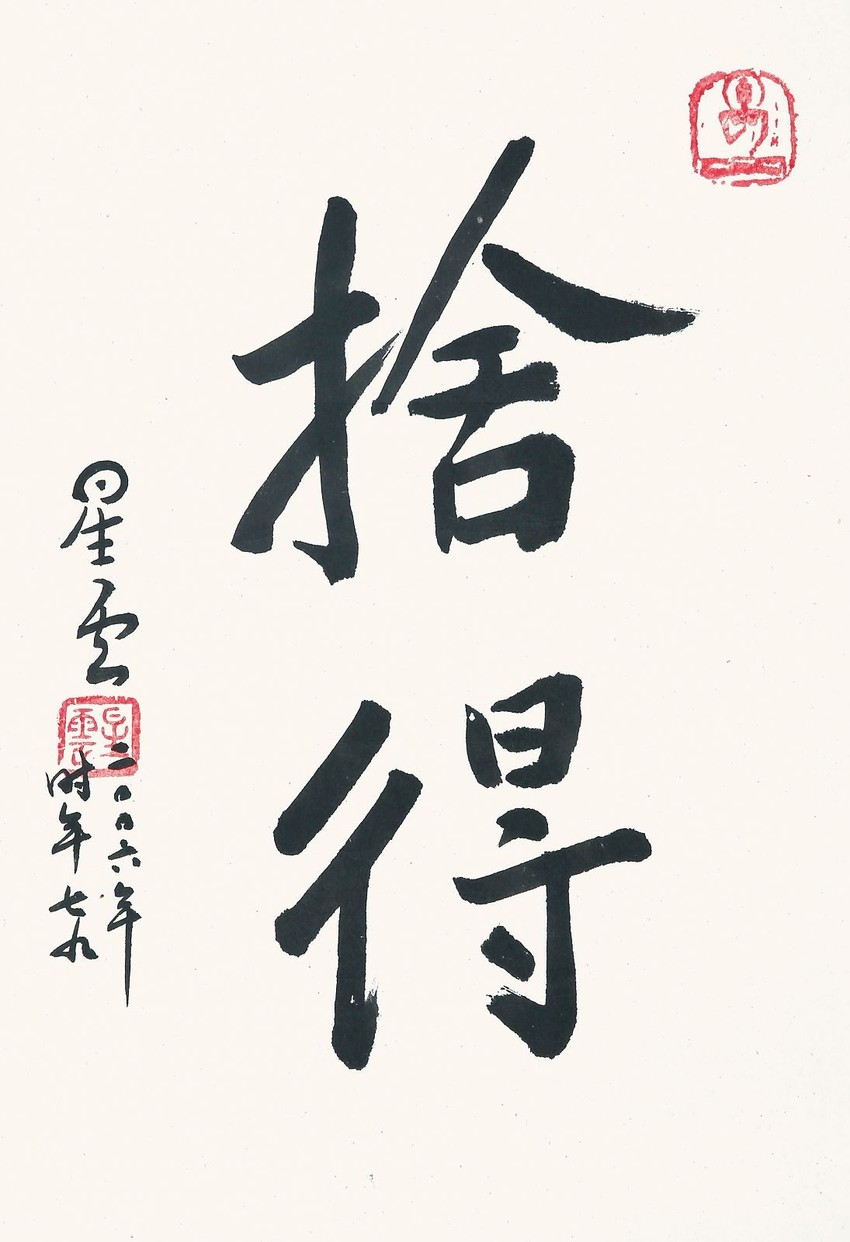 捨得
星雲
二〇〇六年
时年七九
星雲